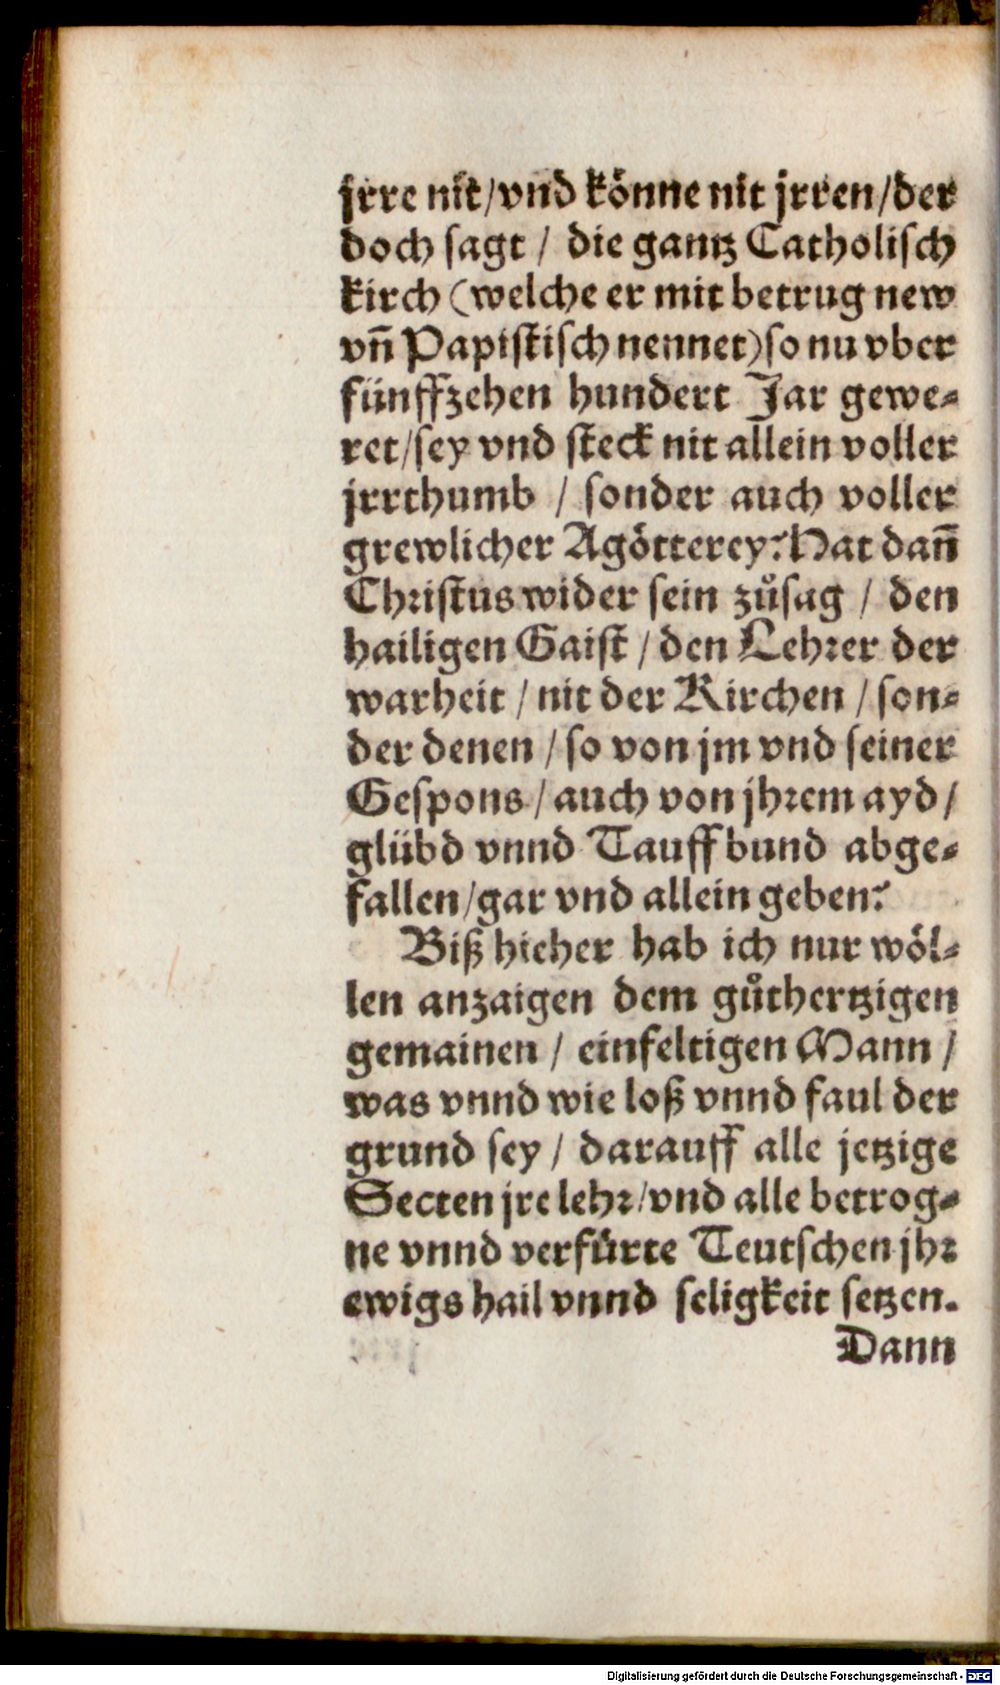 jrre nit / vnd könne nit jrren / der
doch sagt / die gantz Catholisch
kirch (welche er mit betrug new
vñ Papistisch nennet) so nu vber
fünffzehen hundert Jar gewe⸗
ret / sey vnd steck nit allein voller
jrrthumb / sonder auch voller
grewlicher Agötterey? Hat dañ
Christus wider sein zůsag / den
hailigen Gaist / den Lehrer der
warheit / nit der Kirchen / son⸗
der denen / so von jm vnd seiner
Gespons / auch von jhrem ayd /
glübd vnnd Tauffbund abge⸗
fallen / gar vnd allein geben?
Biß hieher hab ich nur wöl⸗
len anzaigen dem gůthertzigen
gemainen / einfeltigen Mann /
was vnnd wie loß vnnd faul der
grund sey / darauff alle jetzige
Secten jre lehr / vnd alle betrog⸗
ne vnnd verfürte Teutschen jhr
ewigs hail vnnd seligkeit setzen.
Dann
Digitalisierung gefördert durch die Deutsche Forschungsgemeinschaft - DFG